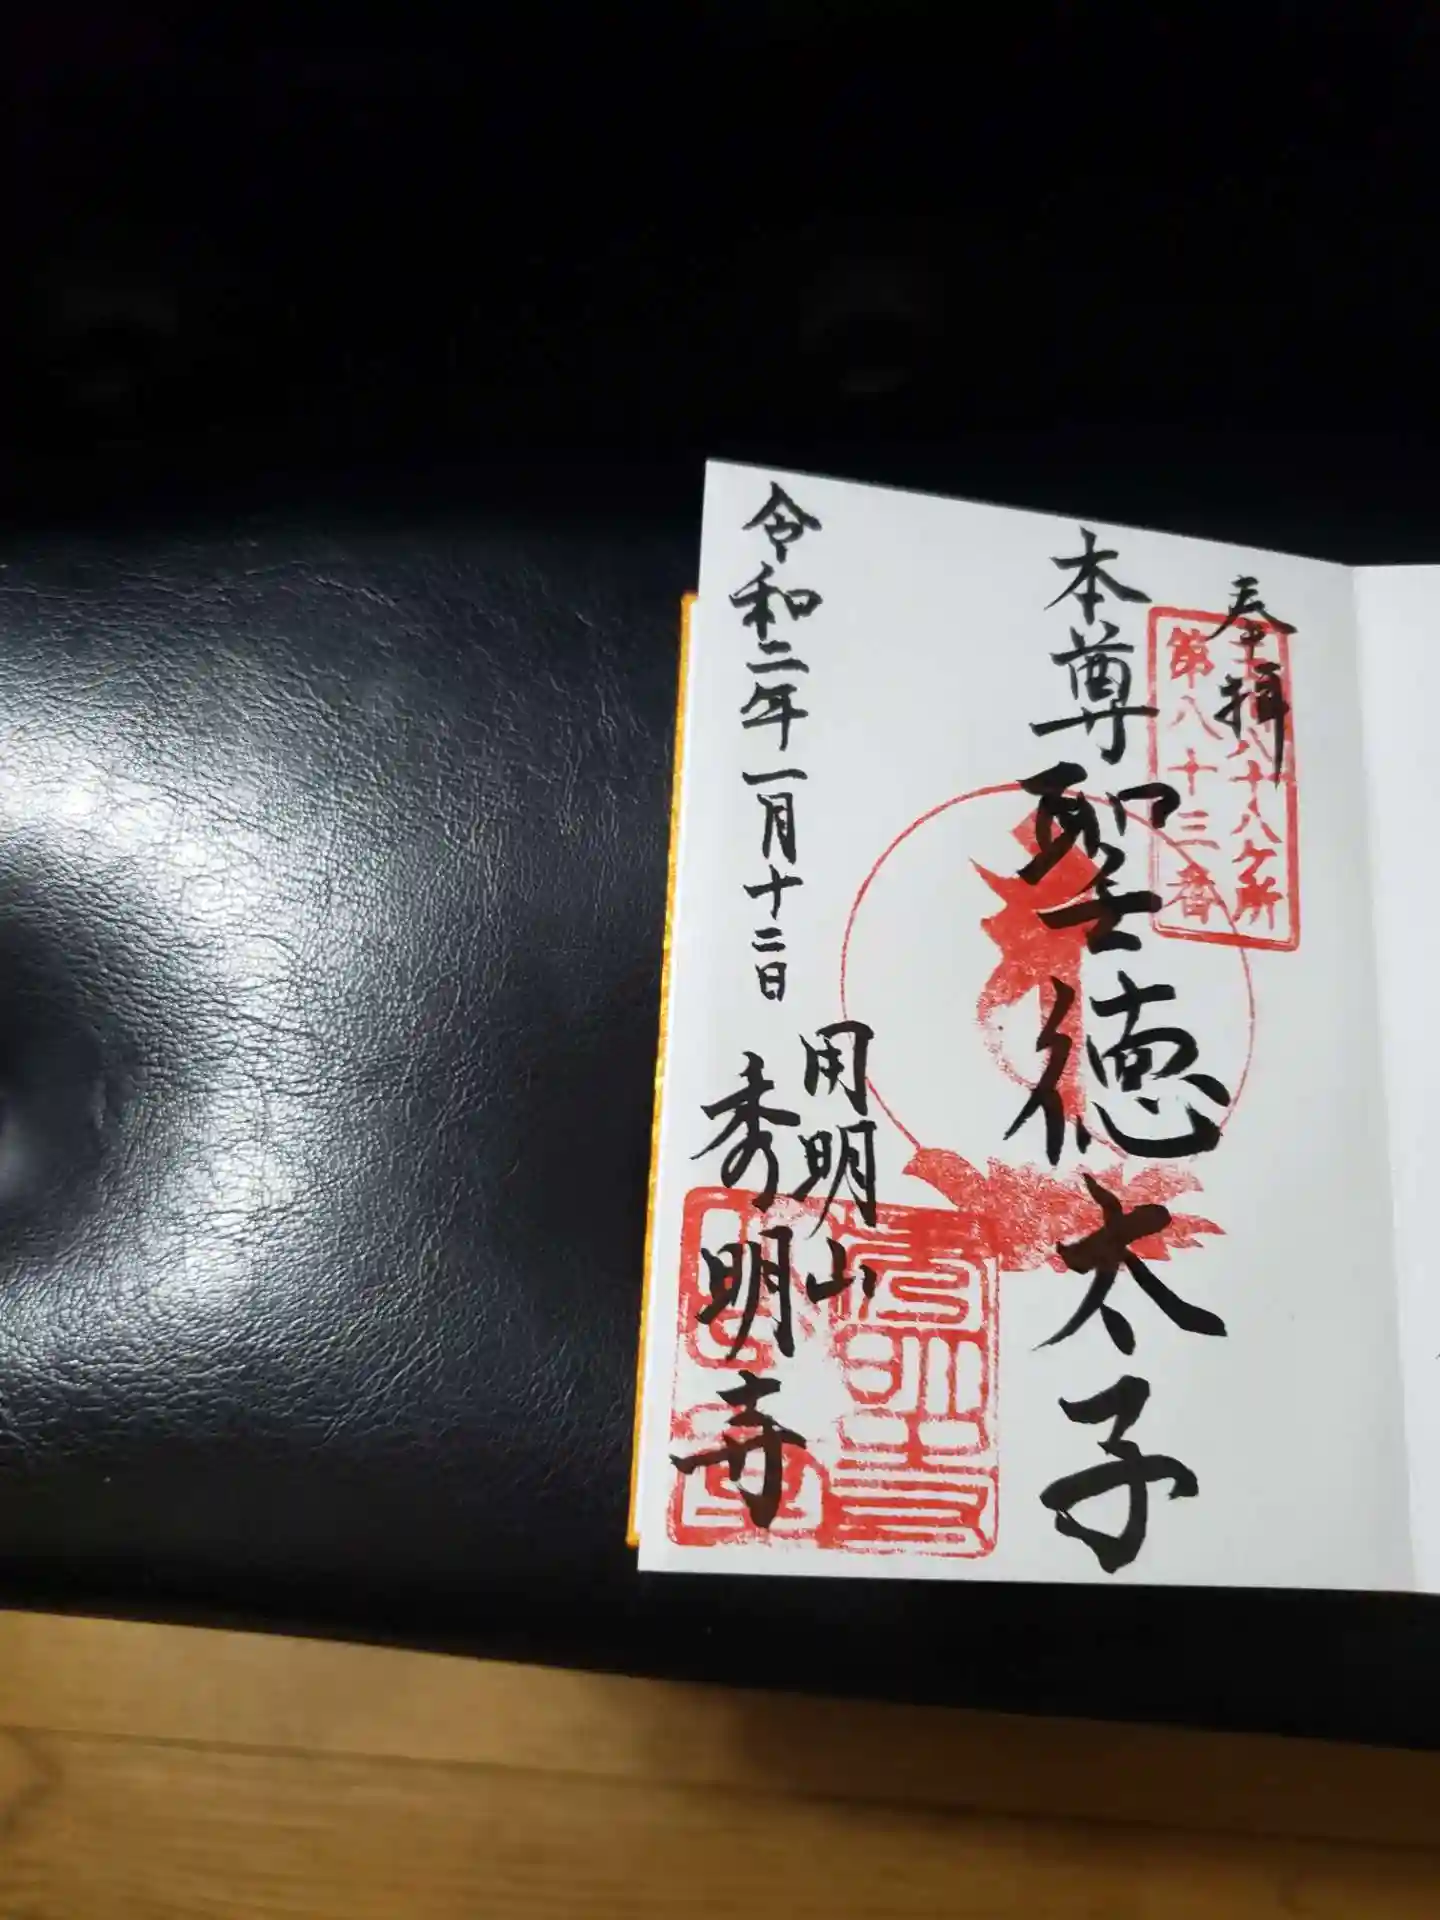 奉拝
八十八ケ所
第八十三番
本尊聖徳太子
用明山
秀明寺
令和二年一月十二日